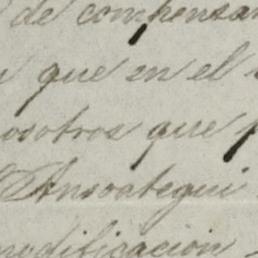 de compensar
que en el
nosotros que
Ansoategui
modificacion